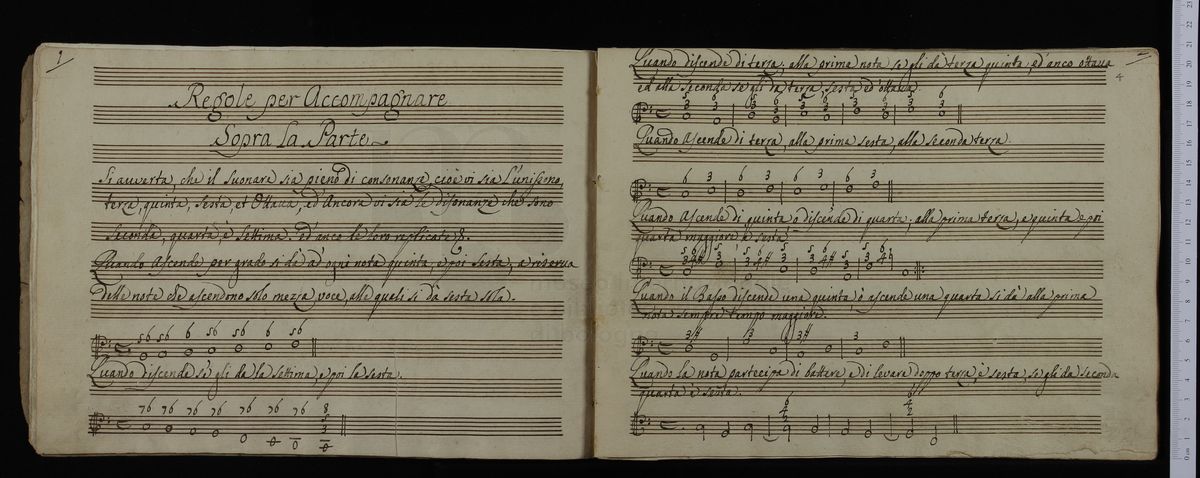 1
Regole per Accompagnare
Sopra la Parte
Si avverta, che il suonare sia pieno di consonanze cioè vi sia l'unissono,
terza, quinta, sesta, et Ottava, ed Ancora vi sia le disonanze che sono
seconda, quarta, e settima. ed anco le loro replicate
Quando Ascende per grado si dè ad ogni nota quinta, e poi sesta, a riserva
delle note che ascendono solo mezza voce, alle quali si dà sesta sola.
56 56 6 56 56 6 56
Quando discende se gli da la settima, e poi la sesta.
76 76 76 76 76 76 76 8
5
3
Quando discende di terza, alla prima nota se gli dà terza quinta, ed anco ottava
4
ed alla seconda se gli da terza, sesta ed ottava.
Quando Ascende di terza, alla prima sesta, alla seconda terza.
6 3 6 3 6 3 6 3
Quando Ascende di quinta ò discende di quarta, alla prima terza, e quinta e poi
quarta maggiore, e sesta
Quando il Basso discende una quinta ò ascende una quarta si dà alla prima
nota sempre tempo maggiore.
3# 3 3# 3
Quando la nota partecipa di battere, e di levare doppo terza, e sesta, se gli da seconda
quarta e sesta.
6
4
2
6
4
2